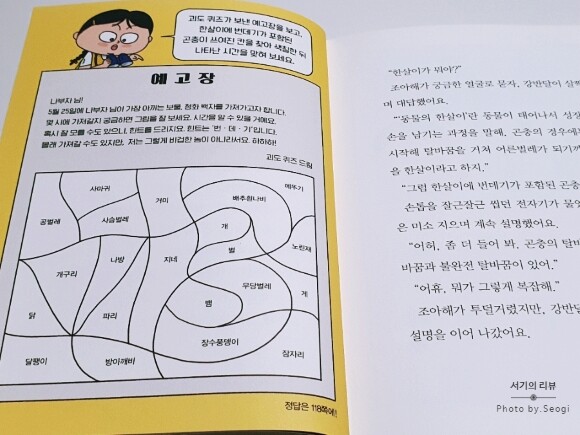 괴도 퀴즈가 보낸 예고장을 보고,
한살이에 번데기가 포함된
곤충이 쓰여진 칸을 찾아 색칠한 뒤
나타난 시간을 맞혀 보세요.
예고장
나부자 님!
5월 25일에 나부자 님이 가장 아끼는 보물, 청화 백자를 가져가고자 합니다.
몇 시에 가져갈지 궁금하면 그림을 잘 보세요. 시간을 알 수 있을 거예요.
혹시 잘 모를 수도 있으니, 힌트를 드리지요. 힌트는 '번·데·기'입니다.
몰래 가져갈 수도 있지만, 저는 그렇게 비겁한 놈이 아니라서요. 하하하!
괴도 퀴즈 드림
사마귀
거미
배추흰나비
메뚜기
공벌레
사슴벌레
개
벌
노린재
개구리
나방
지네
무당벌레
게
뱀
닭
파리
장수풍뎅이
달팽이
방아깨비
잠자리
정답은 118쪽에!
"한살이가 뭐야?"
조아해가 궁금한 얼굴로 묻자, 강반달이 살짝
며 대답했어요.
"'동물의 한살이'란 동물이 태어나서 성장
손을 남기는 과정을 말해. 곤충의 경우에
시작해 탈바꿈을 거쳐 어른벌레가 되기까
을 한살이라고 하지."
"그럼 한살이에 번데기가 포함된 곤충
손톱을 잘근잘근 씹던 전자기가 물었
은 미소 지으며 계속 설명했어요.
"어허, 좀 더 들어 봐. 곤충의 탈바
바꿈과 불완전 탈바꿈이 있어."
"어휴, 뭐가 그렇게 복잡해."
조아해가 투덜거렸지만, 강반달
설명을 이어 나갔어요.
서기의 리뷰
Photo by.Seogi